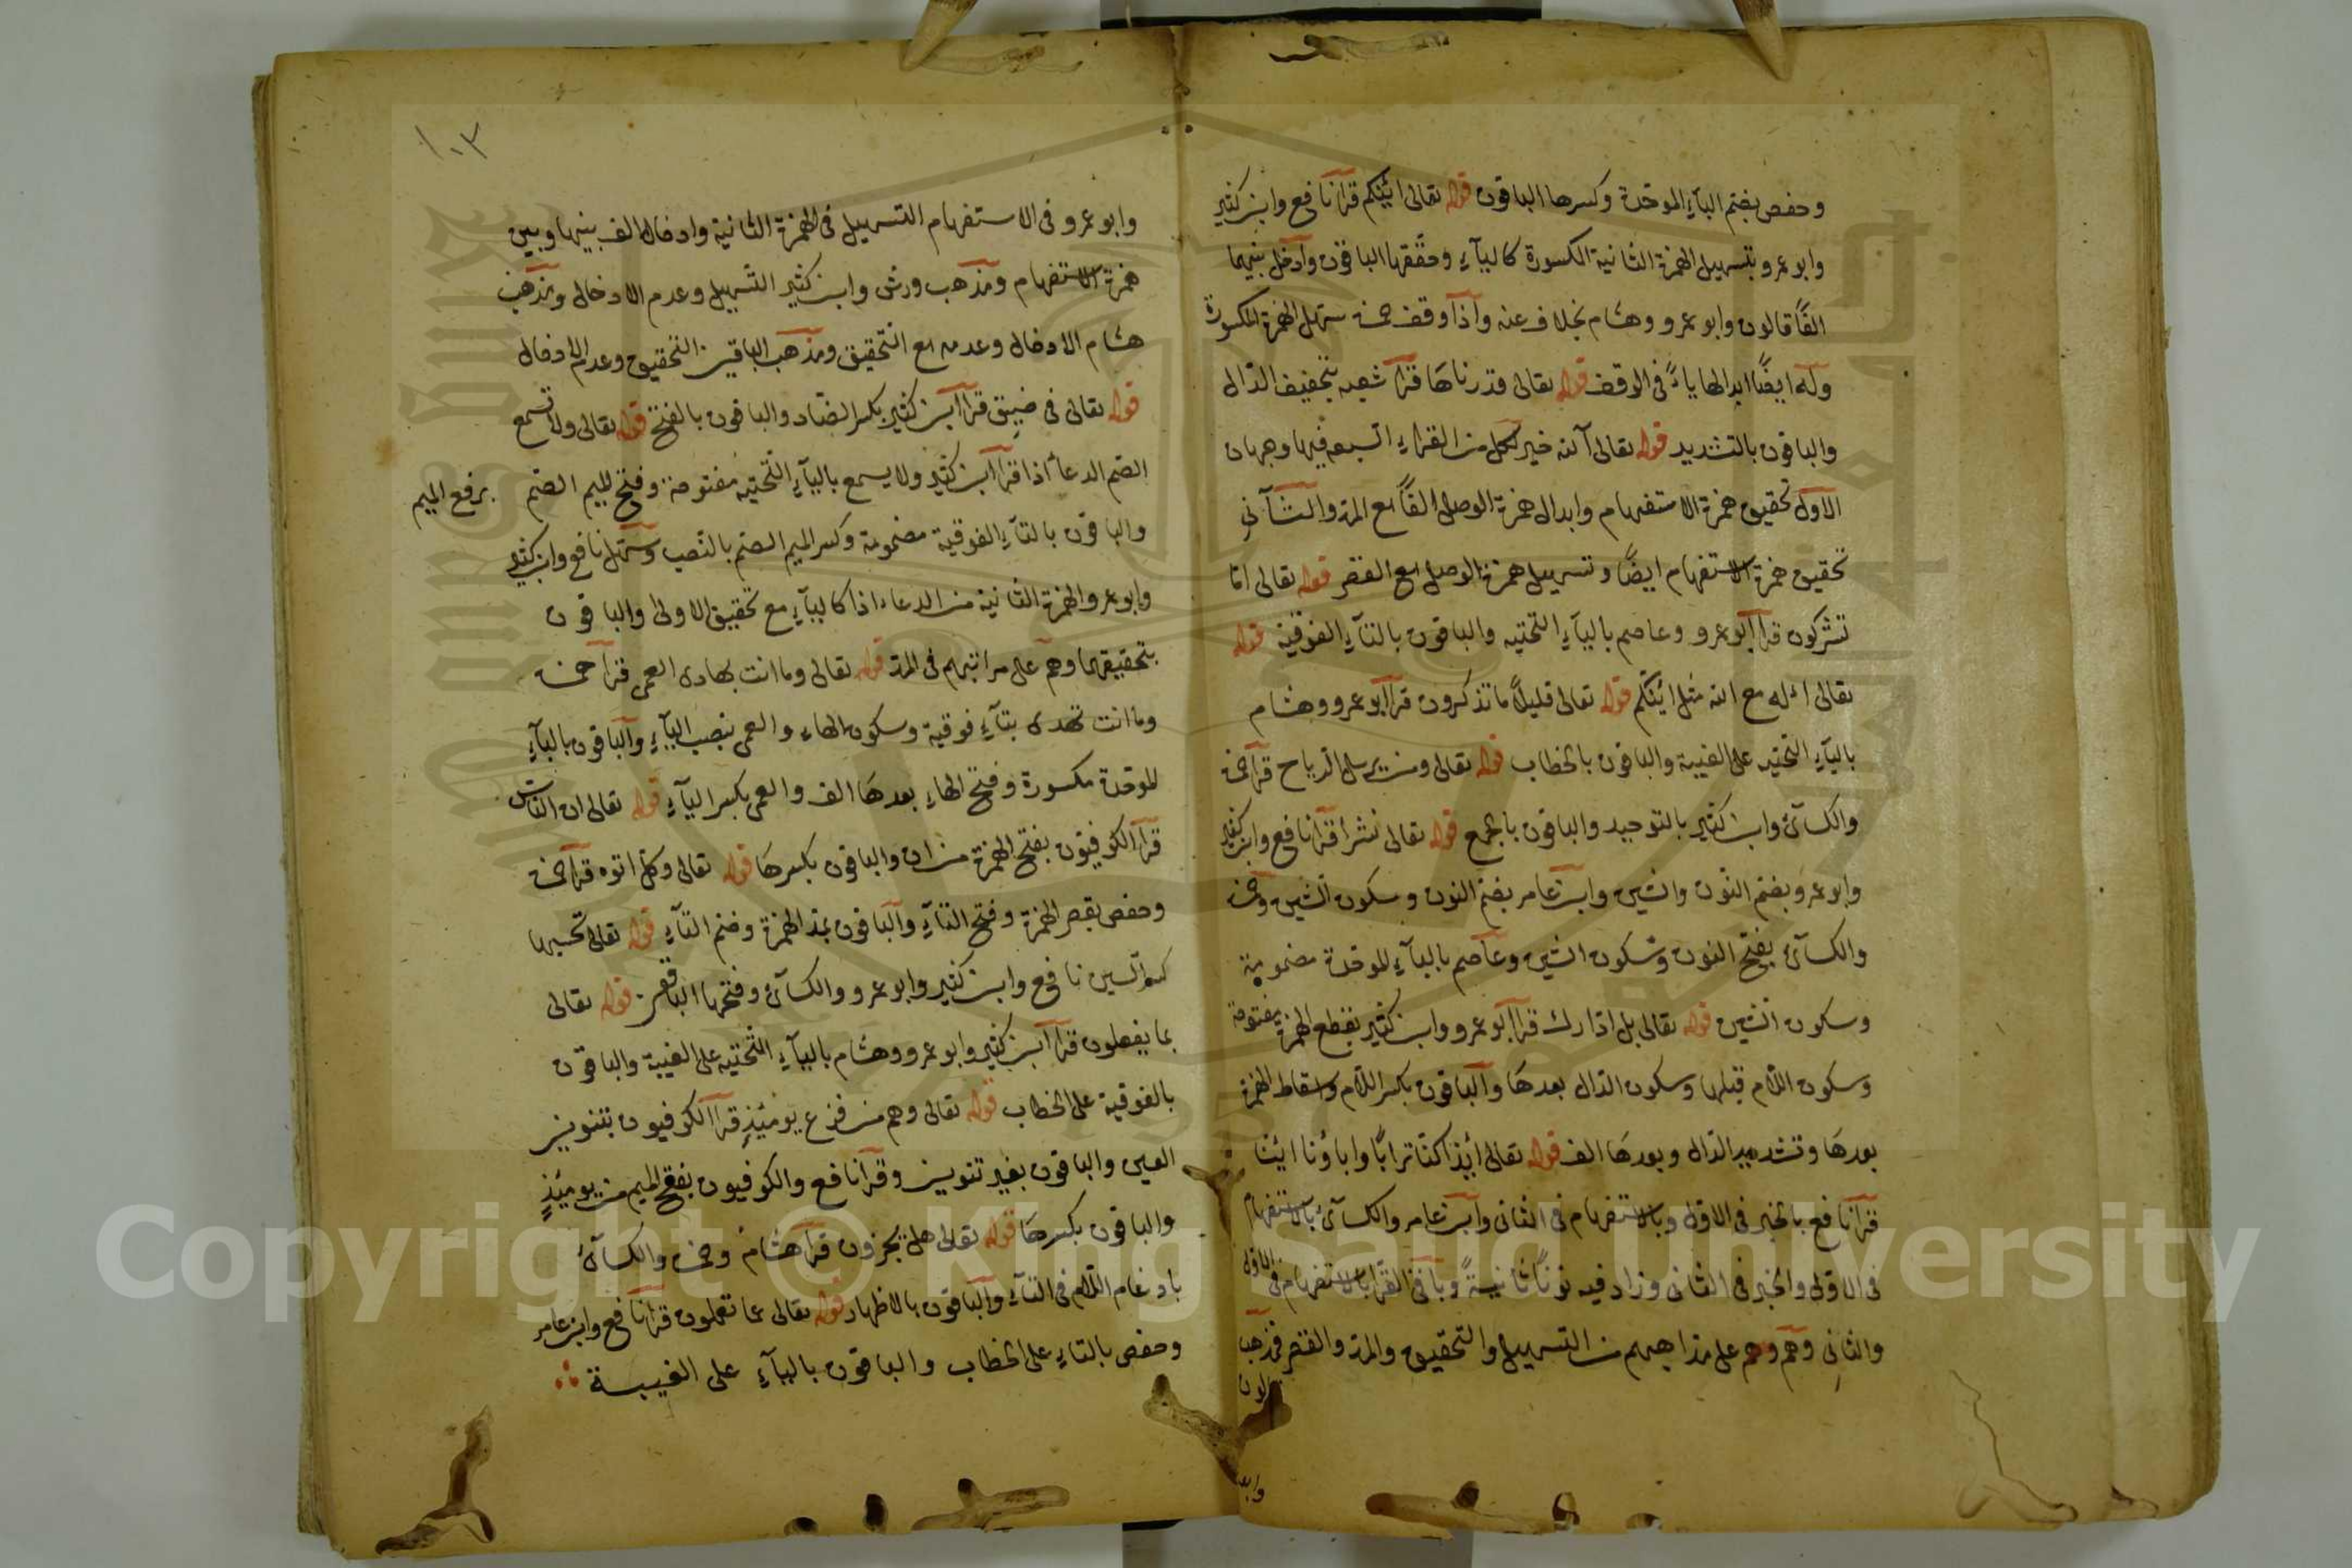 وحفص بضم البآءِ الموحّدة وكسرها الباقون قوله تعالى ائنكم قرأ نافع وابن كثير
وابو عمرو بتسهيل الهمزة الثانية المكسورة كاليآءِ وحقّقها الباقون وادخل بينهما
الفًا قالون وابو عمرو وهشام بخلاف عنه واذا وقف حمزة سهّل الهمزة المكسورة
وله ايضًا ابدالها ياءً فى الوقف قوله تعالى قدرناهَا قرأ شعبه بتخفيف الدّال
والباقون بالتشديد قوله تعالى آلله خير لكل من القراء السبعه فيها وجهان
الاول تحقيق همزة الاستفهام وابدال همزة الوصل الفًا مع المد والثآنى
تحقيق همزة الاستفهام ايضًا وتسهيل همزة الوصل مع القصر قوله تعالى امّا
تشركون قرأ ابو عمرو وعاصم باليآءِ التحتيه والباقون بالتآءِ الفوقية قوله
تعالى اءله مع الله مثل ائنكم قوله تعالى قليلاً ما تذكرون قرأ ابو عمرو وهشام
باليآءِ التحتيه على الغيبة والباقون بالخطاب قوله تعالى ومن يرسل الرياح قرأ حمزة
والكسآئ وابن كثير بالتوحيد والباقون بالجمع قوله تعالى نشرا قرأ نافع وابن كثير
وابو عمرو بضم النّون والشين وابن عامر بضم النون وسكون الشين وحمزة
والكسآئ بفتح النون وسكون الشين وعاصم بالبآءِ الموحدة مضمومة
وسكون الشين قوله تعالى بل ادّارك قرأ ابو عمرو وابن كثير بقطع الهمزة مفتوحة
وسكون اللّام قبلها وسكون الدّال بعدهَا والباقون بكسر اللّام واسقاط الهمزة
بعدهَا وتشديد الدّال وبعدهَا الف قوله تعالى ائذا كنّا ترابًا واباؤنا ائنا
قرأ نافع بالخبر فى الاول وبالاستفهام فى الثانى وابن عامر والكسآئ بالاستفهام
فى الاول والخبر فى الثانى وزاد فيه نونًا ثانيةً وباقى القرّا بالاستفهام فى الاول
والثانى وهم وهم على مذاهبهم من التسهيل والتحقيق والمد والقصر فمذهب
قالون
وابو
١٠٣
وابو عمرو فى الاستفهام التسهيل فى الهمزة الثانية وادخال الف بينها وبين
همزة الاستفهام ومذهب ورش وابن كثير التسهيل وعدم الادخال ومذهب
هشام الادخال وعدمه مع التحقيق ومذهب الباقين التحقيق وعدم الادخال
قوله تعالى فى ضيق قرأ ابن كثير بكسر الضّاد والباقون بالفتح قوله تعالى ولا تسمع
الصّم الدعآ اذا قرأ ابن كثير ولا يسمع باليآءِ التّحتيه مفتوحة وفتح الميم الصّم برفع الميم
والباقون بالتآءِ الفوقية مضمومة وكسر الميم الصّم بالنّصب وسهّل نافع وابن كثير
وابو عمرو الهمزة الثانية من الدعاء اذا كاليآءِ مع تحقيق الاولى والباقون
بتحقيقهما وهم على مراتبهم فى المدّ قوله تعالى وما انت بهادى العمى قرأ حمزة
وما انت تهدى بتآءِ فوقية وسكون الهاء والعمى بنصب اليآءِ والباقون بالبآءِ
الموحّدة مكسورة وفتح الهاء بعدهَا الف والعمى بكسر اليآءِ قوله تعالى ان النّاس
قرأ الكوفيّون بفتح الهمزة من ان والباقون بكسرهَا قوله تعالى وكل اتوه قرأ حمزة
وحفص بقصر الهمزة وفتح التّآءِ والباقون بمد الهمزة وضم التآءِ قوله تعالى تحسبها
كسر السين نافع وابن كثير وابو عمرو والكسآئ وفتحها الباقون قوله تعالى
بما يفعلون قرأ ابن كثير وابو عمرو وهشام باليآءِ التّحتيه على الغيبة والباقون
بالفوقية على الخطاب قوله تعالى وهم من فزع يومئذٍ قرأ الكوفيون بتنوين
العين والباقون بغير تنوين وقرأ نافع والكوفيون بفتح الميم من يومئذٍ
والباقون بكسرهَا قوله تعالى هل يجزون قرأ هشام وحمزة والكسآئ
بادغام اللّام فى التآءِ والباقون بالاظهار قوله تعالى عما تعملون قرأ نافع وابن عامر
وحفص بالتاءِ على الخطاب والباقون باليآءِ على الغيبة
Copyright © King Saud University